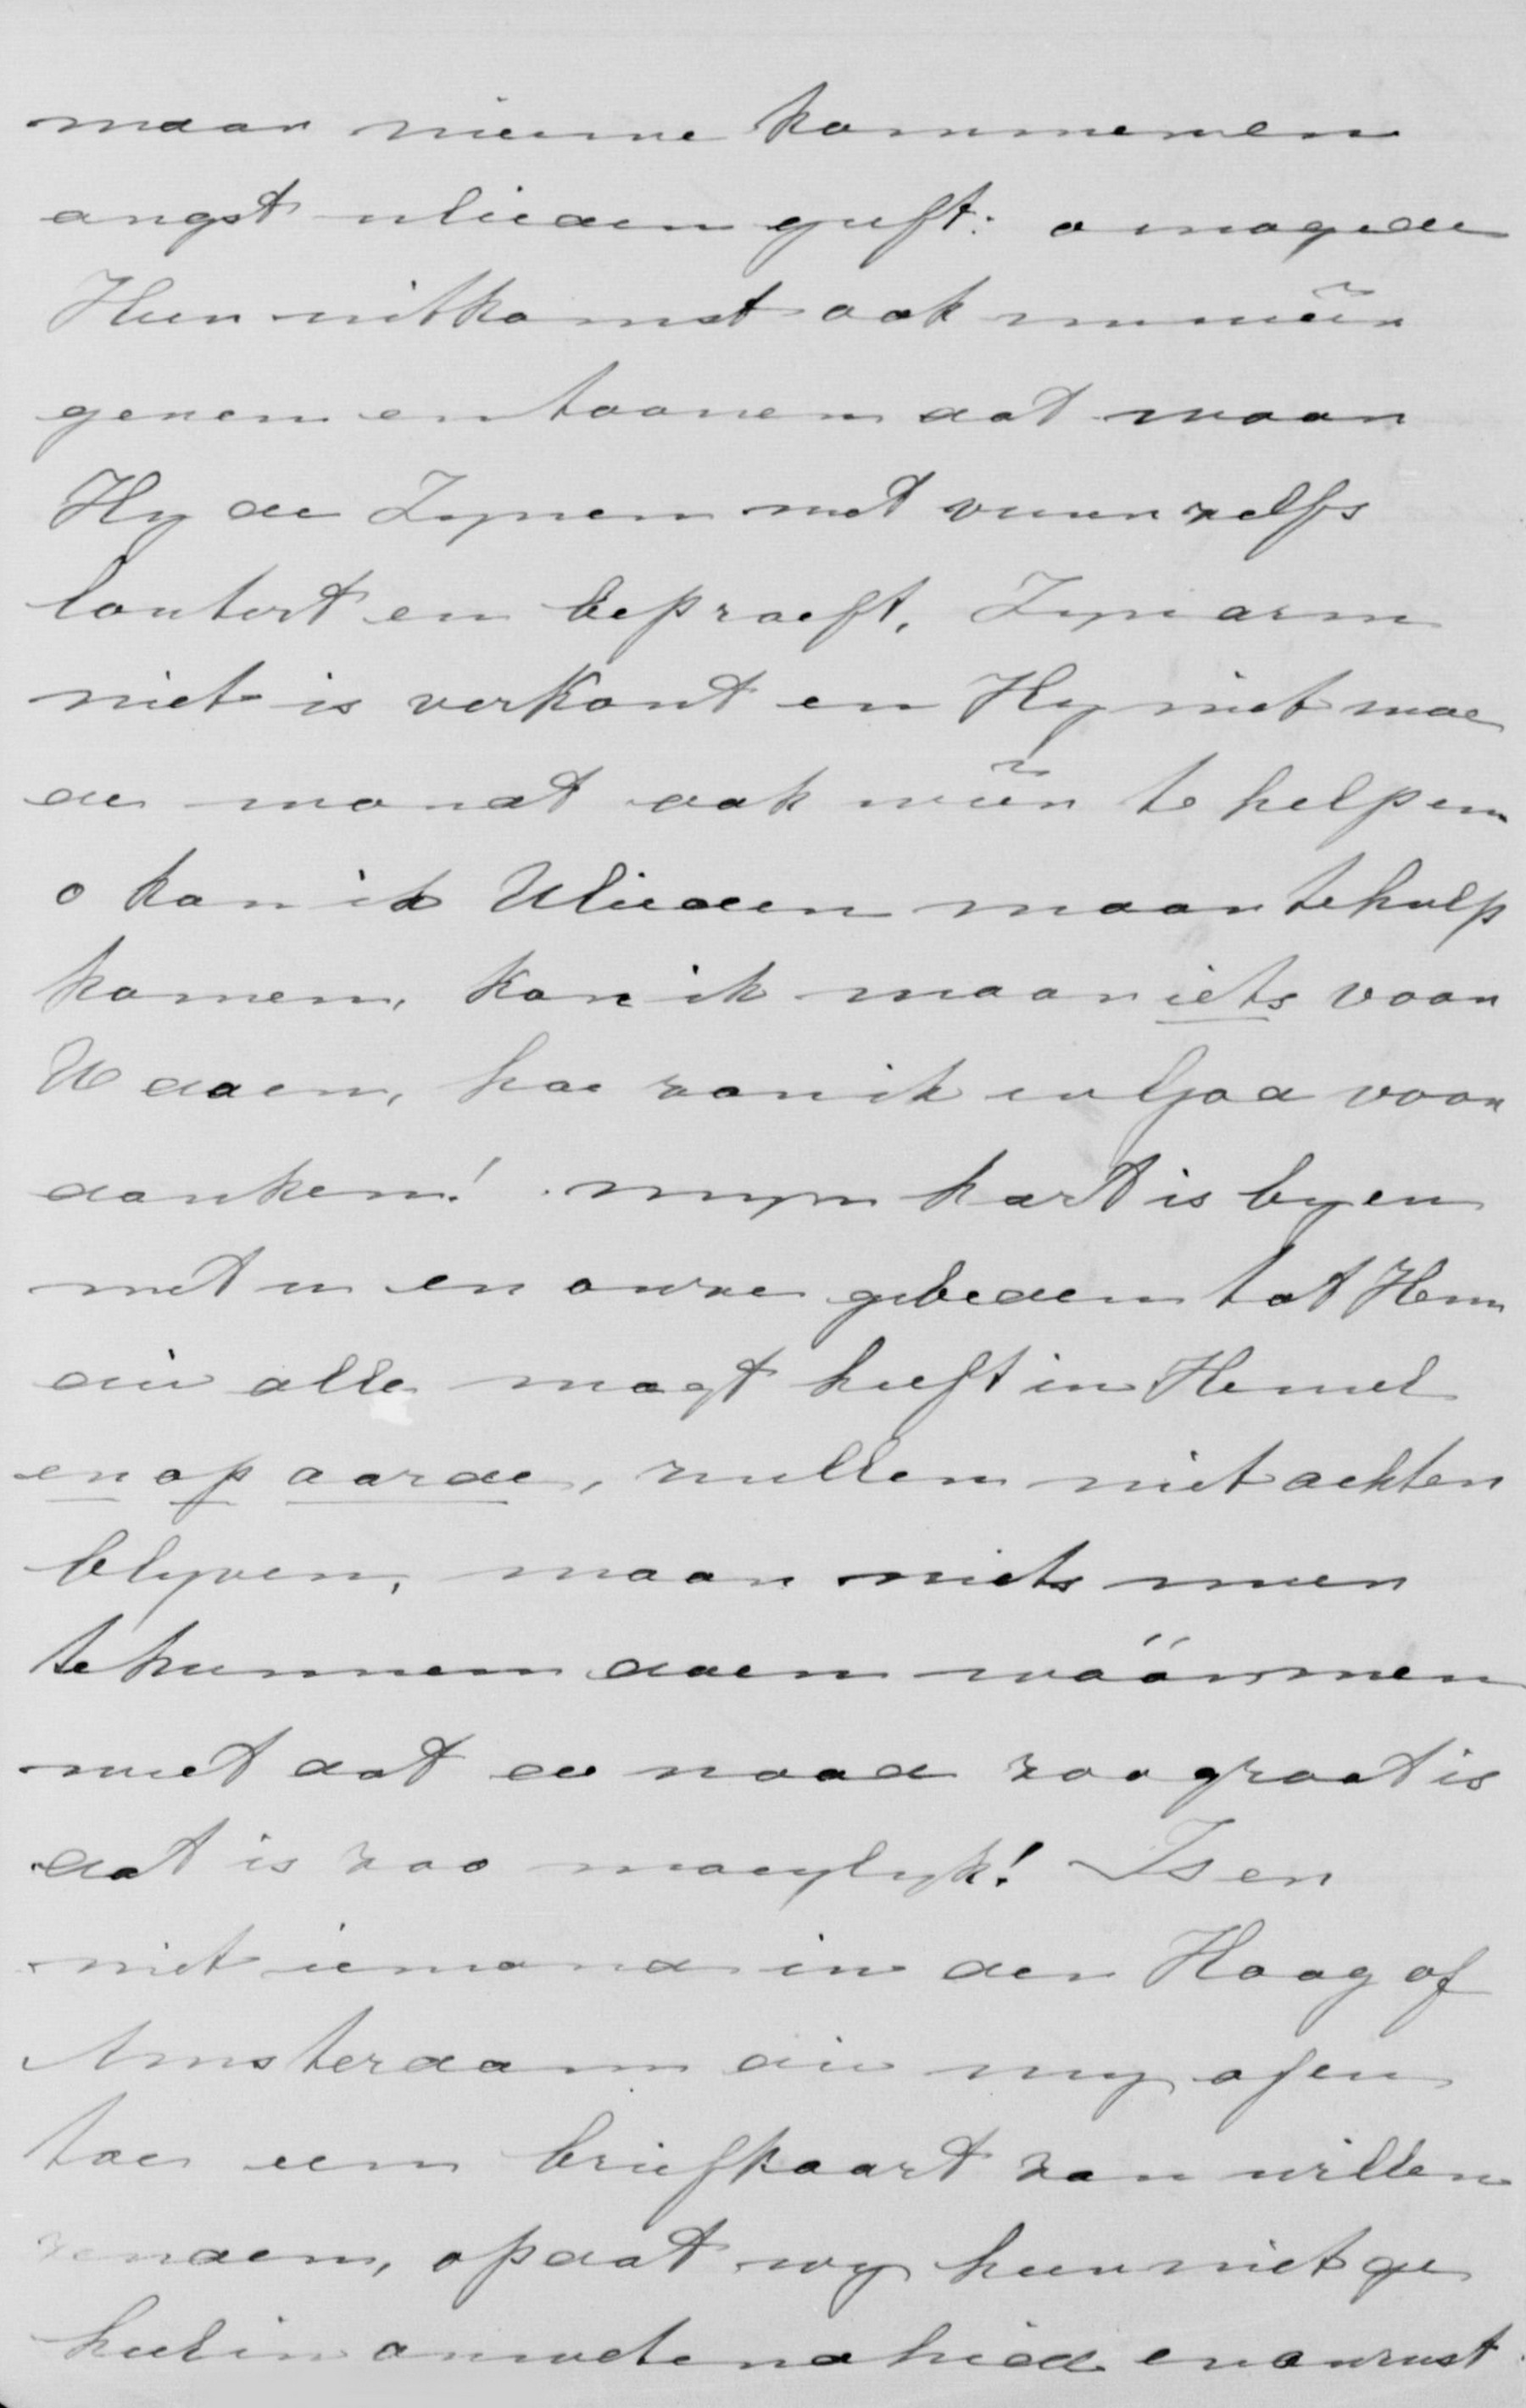 maar nieuwe kommer en
angst ulieden geeft: o moge de
Heer uitkomst ook nu wéér
geven en toonen dat waar
Hy de Zynen met vuur zelfs
loutert en beproeft, Zyn arm
niet is verkort en Hy niet moe
de wordt ook wéér te helpen
o kon ik Ulieden maar te hulp
komen, kon ik maar iets voor
U doen, hoe zou ik er God voor
danken! myn hart is by en
met u en onze gebeden tot Hem
die alle magt heeft in Hemel
en op aarde, zullen niet achter
blyven, maar niets meer
te kunnen doen wáár men
weet dat de nood zoo groot is
dat is zoo moeylyk! Is er
niet iemand in den Haag of
Amsterdam die my af en
toe een briefkaart zou willen
zenden, opdat wy hier niet ge
heel in onwetendheid en onrust